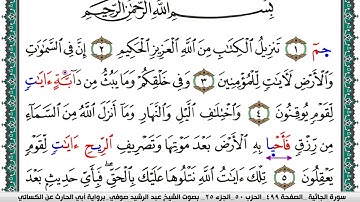 بِسْمِ اللَّهِ الرَّحْمَٰنِ الرَّحِيمِ
حمٓ ۝١ تَنزِيلُ الْكِتَابِ مِنَ اللَّهِ الْعَزِيزِ الْحَكِيمِ ۝٢ إِنَّ فِي السَّمَاوَاتِ
وَالْأَرْضِ لَآيَاتٍ لِلْمُؤْمِنِينَ ۝٣ وَفِي خَلْقِكُمْ وَمَا يَبُثُّ مِن دَابَّةٍ ءَايَاتٍ
لِقَوْمٍ يُوقِنُونَ ۝٤ وَاخْتِلَافِ الَّيْلِ وَالنَّهَارِ وَمَا أَنزَلَ اللَّهُ مِنَ السَّمَاءِ
مِن رِزْقٍ فَأَحْيَا بِهِ الْأَرْضَ بَعْدَ مَوْتِهَا وَتَصْرِيفِ الرِّيحِ ءَايَاتٍ لِقَوْمٍ
يَعْقِلُونَ ۝٥ تِلْكَ ءَايَاتُ اللَّهِ نَتْلُوهَا عَلَيْكَ بِالْحَقِّ فَبِأَيِّ حَدِيثٍ بَعْدَ
سورة الجاثية . الصفحة ٤٩٩ الحزب ٥٠ الجزء ٢٥ بصوت الشيخ عبد الرشيد صوفي برواية أبي الحارث عن الكسائي